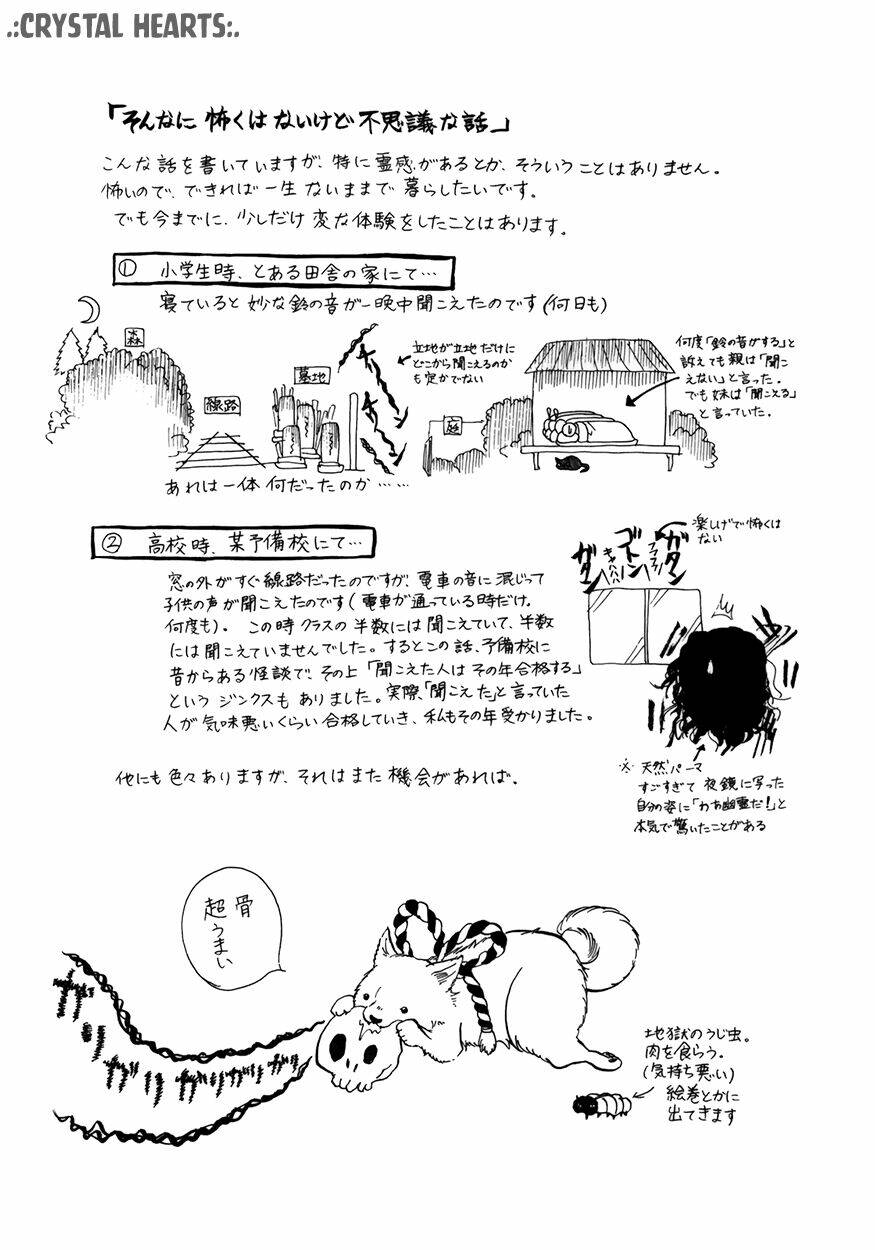 .:CRYSTAL HEARTS:.
「そんなに 怖くは ないけど 不思議な話」
こんな話を書いていますが、特に霊感があるとか、そういうことはありません。
怖いので、できれば一生 ないままで 暮らしたいです。
でも今までに、少しだけ 変な体験をしたことはあります。
① 小学生時、とある田舎の家にて…
寝ていると 妙な鈴の音が一晩中聞こえたのです(何日も)
森
線路
墓地
チリーン
チリーン
立地が立地だけに
どこから聞こえるのか
も定かでない
庭
何度「鈴の音がする」と
訴えても親は「聞こ
えない」と言った。
でも妹は「聞こえる」
と言っていた。
あれは一体 何だったのか……
② 高校時、某予備校にて…
窓の外がすぐ線路だったのですが、電車の音に混じって
子供の声が聞こえたのです(電車が通っている時だけ。
何度も)。この時クラスの半数には聞こえていて、半数
には聞こえていませんでした。するとこの話、予備校に
昔からある怪談で、その上「聞こえた人は その年合格する」
という ジンクスも ありました。実際、「聞こえた」と言っていた
人が 気味悪いくらい 合格していき、私もその年受かりました。
楽しげで怖くは
ない
ガタン
ゴトン
ガタン
※ 天然パーマ
すごすぎて 夜鏡に写った
自分の姿に「わあ幽霊だ!」と
本気で驚いたことがある
他にも色々ありますが、それはまた機会があれば。
骨
超うまい
地獄のうじ虫。
肉を食らう。
(気持ち悪い)
絵巻とかに
出てきます